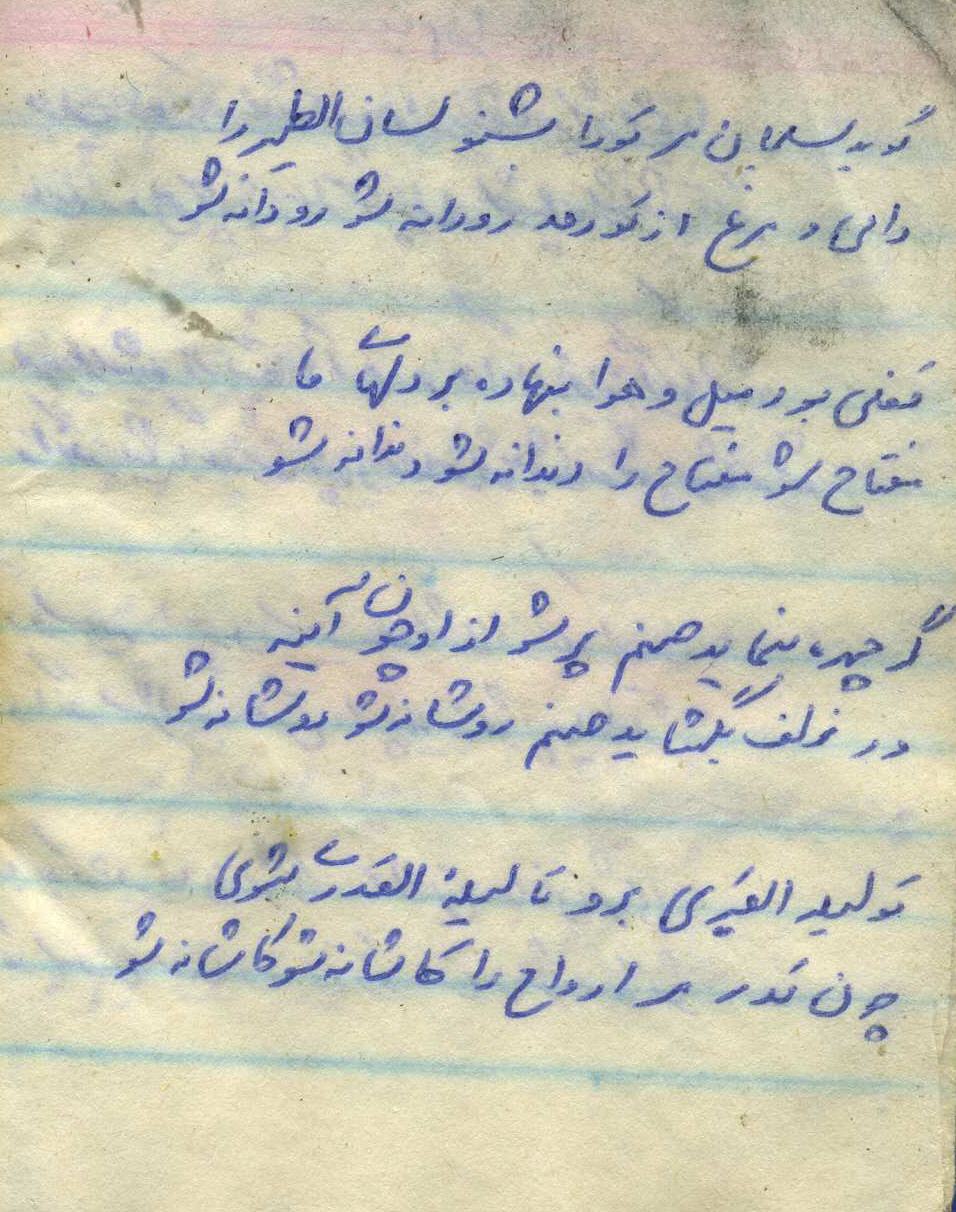 گوید سلیمان مر تورا بشنو لسان الطیر را
دامی و مرغ از تو رمد رو دانه شو رو دانه شو
قفلی بود میل و هوا بنهاده بر دلهای ما
مفتاح شو مفتاح را دندانه شو دندانه شو
گر چهره بنماید صنم پر شو از او چون آینه
ور زلف بگشاید صنم رو شانه شو رو شانه شو
تو لیله القبری برو تا لیله القدری شوی
چون قدر مر ارواح را کاشانه شو کاشانه شو